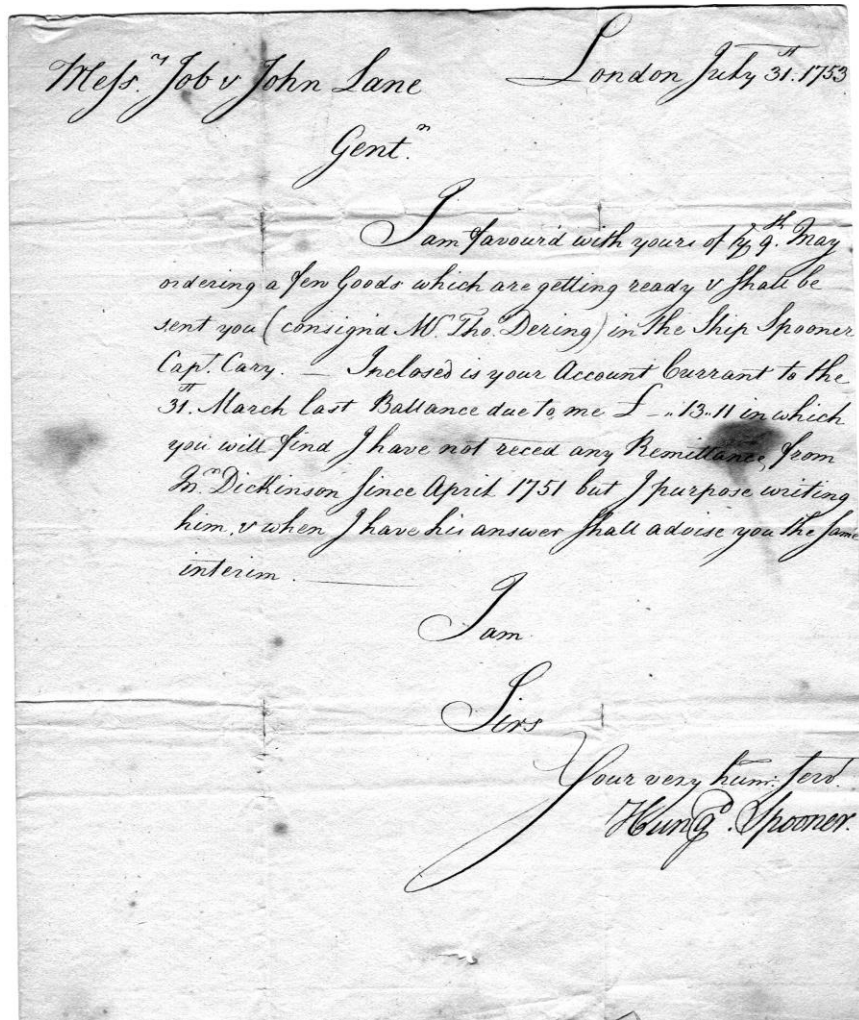 Mess.rs Job & John Lane London July 31.st 1753
Gent.n
I am favour'd with yours of ye 9.th May
ordering a few Goods which are getting ready & shall be
sent you (consign'd Mr. Tho.s Dering) in the Ship Spooner
Capt. Cary. — Inclosed is your Account Currant to the
31.st March last Ballance due to me £ -.. 13.. 11 in which
you will find I have not reced any Remittance, from
Mr. Dickinson since April 1751 but I purpose writing
him, & when I have his answer shall advise you the same
interim. —
I am
Sirs
Your very hum. Serv.
Spooner.